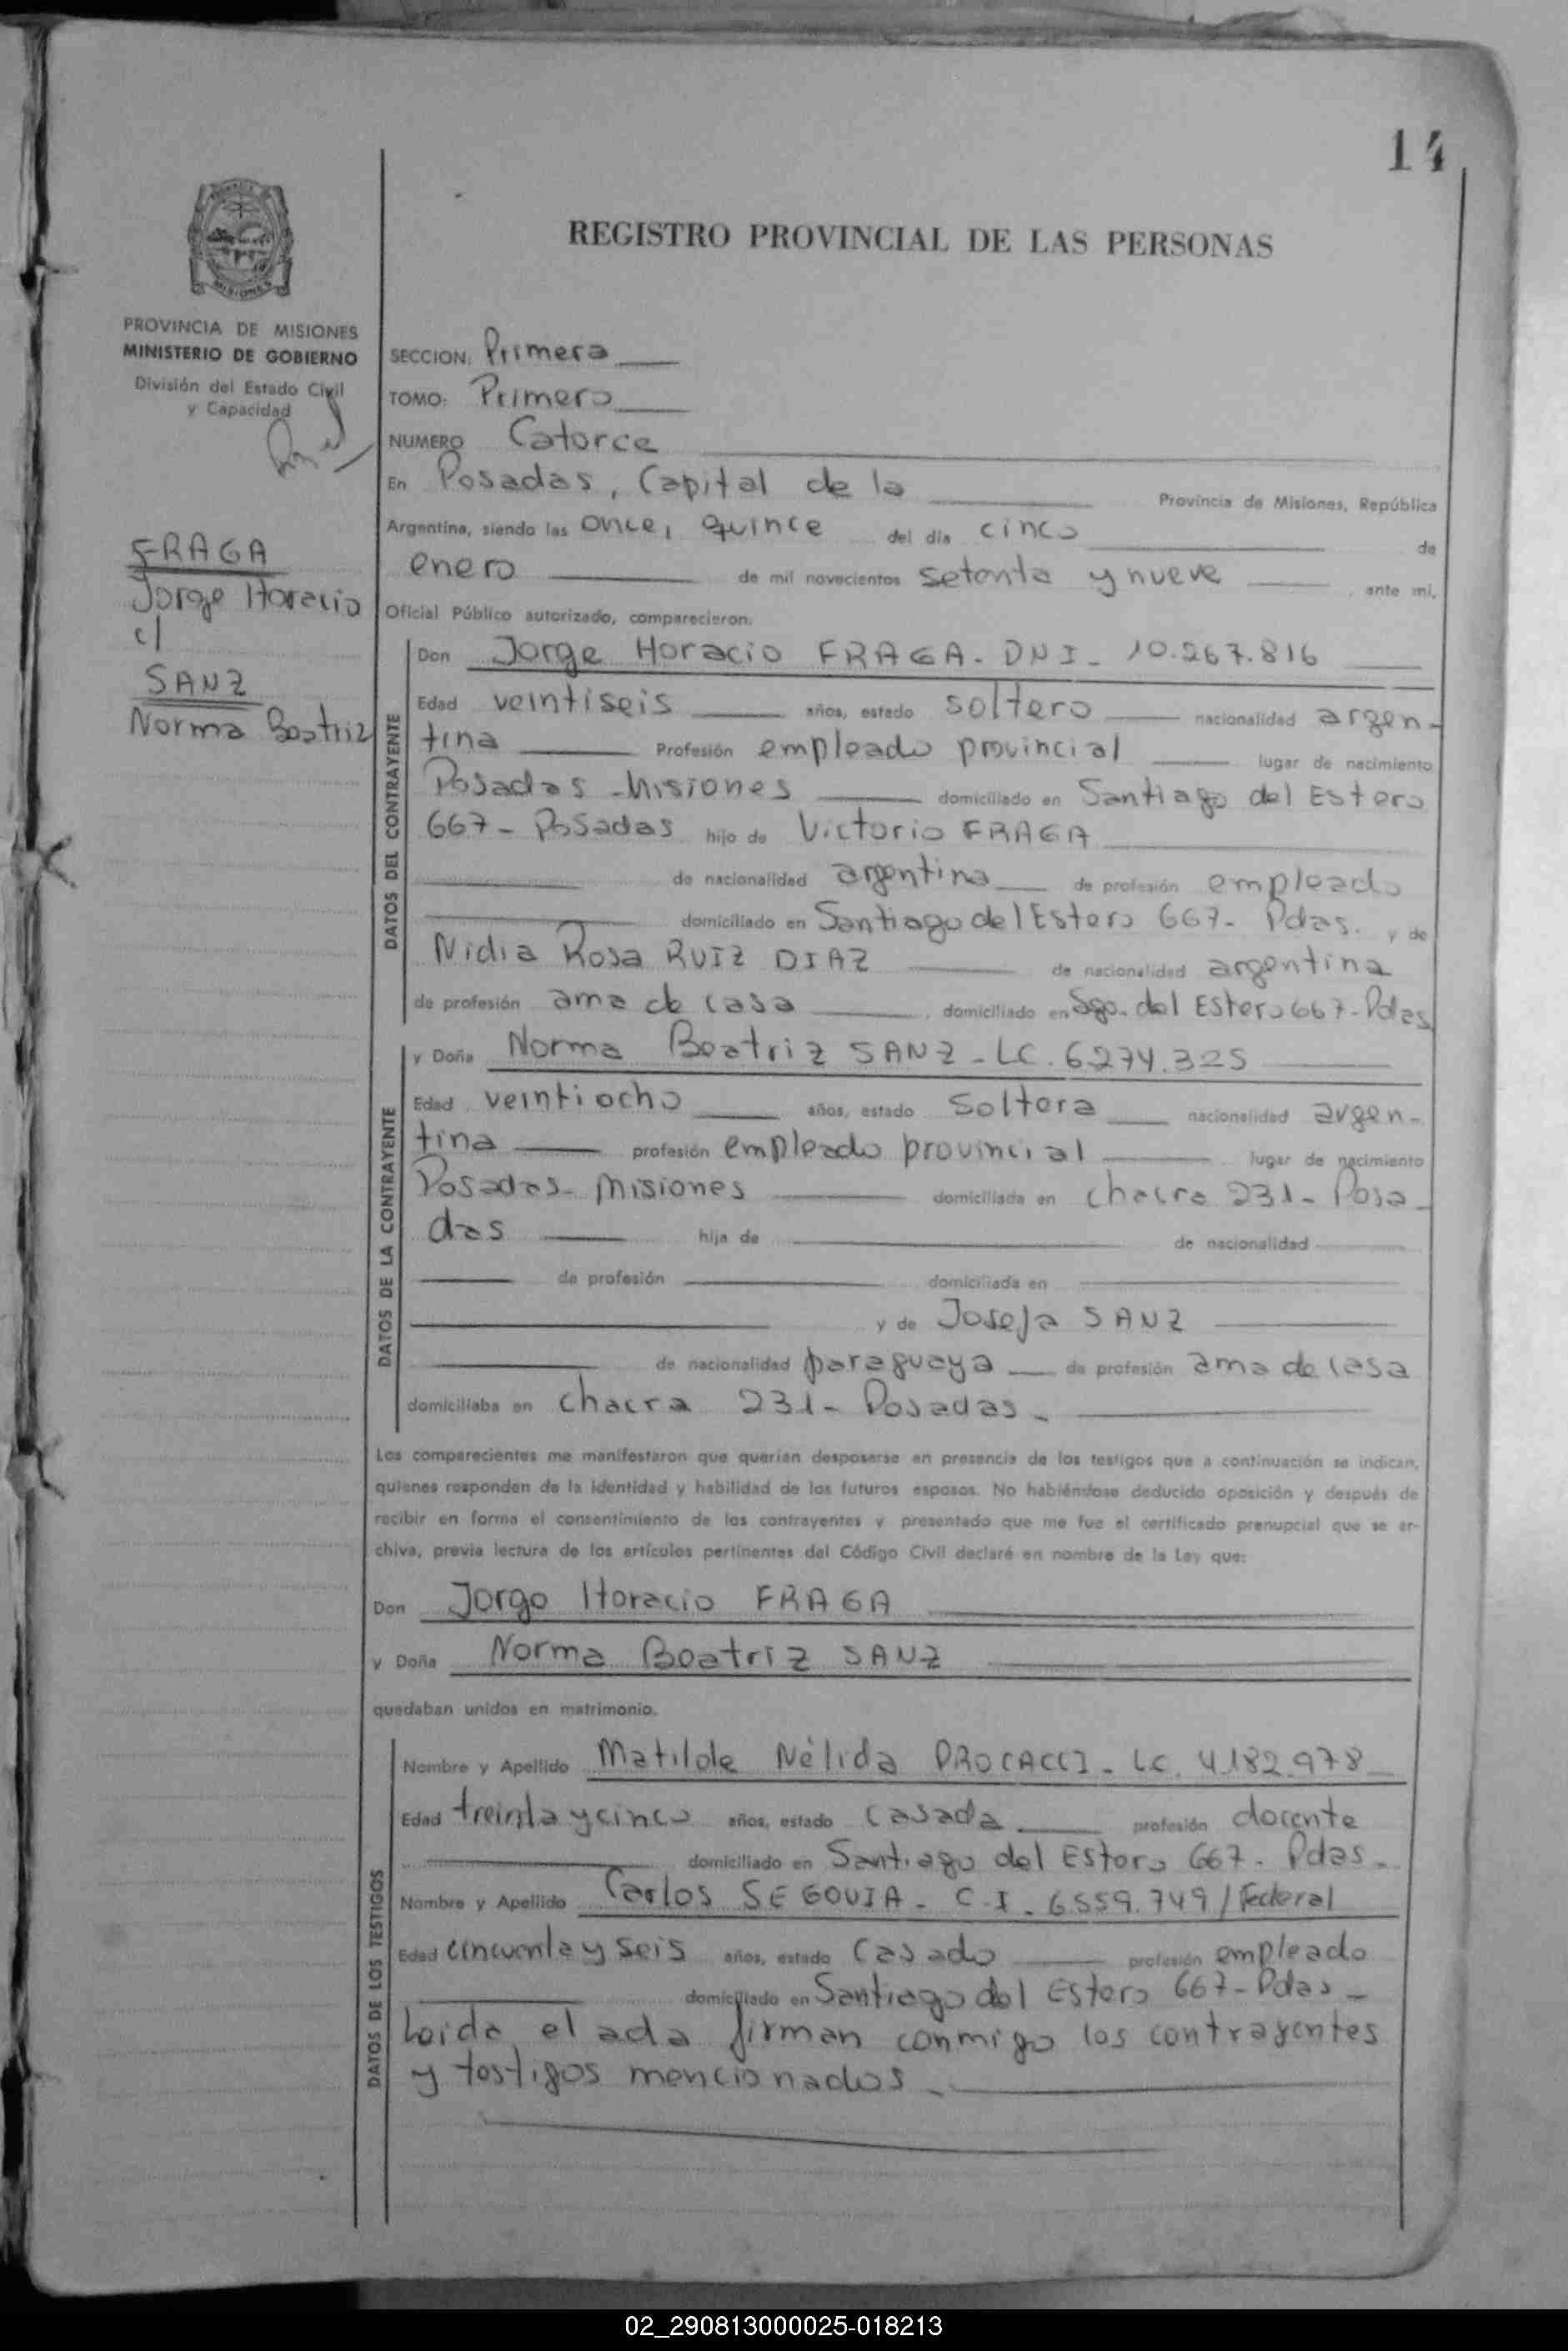 14
REGISTRO PROVINCIAL DE LAS PERSONAS
MISIONES
PROVINCIA DE MISIONES
MINISTERIO DE GOBIERNO
División del Estado Civil
y Capacidad
FRAGA
Jorge Horacio
c/
SANZ
Norma Beatriz
SECCION: Primera
TOMO: Primero
NUMERO Catorce
En Posadas, Capital de la Provincia de Misiones, República
Argentina, siendo las once, quince del día cinco de
enero de mil novecientos setenta y nueve, ante mí.
Oficial Público autorizado, comparecieron.
DATOS DEL CONTRAYENTE
Don Jorge Horacio FRAGA - DNI - 10.267.816
Edad veintiseis años, estado soltero nacionalidad argen-
tina Profesión empleado provincial lugar de nacimiento
Posadas - Misiones domiciliado en Santiago del Estero
667 - Posadas hijo de Victorio FRAGA
de nacionalidad argentina de profesión empleado
domiciliado en Santiago del Estero 667 - Pdas. y de
Nidia Rosa RUIZ DIAZ de nacionalidad argentina
de profesión ama de casa, domiciliado en Sgo. del Estero 667 - Pdas
DATOS DE LA CONTRAYENTE
y Doña Norma Beatriz SANZ - LC. 6.274.325
Edad veintiocho años, estado Soltera nacionalidad argen-
tina profesión empleado provincial lugar de nacimiento
Posadas - Misiones domiciliada en chacra 231 - Posa-
das hija de de nacionalidad
de profesión domiciliada en
y de Josefa SANZ
de nacionalidad paraguaya de profesión ama de casa
domiciliaba en chacra 231 - Posadas -
Los comparecientes me manifestaron que querían desposarse en presencia de los testigos que a continuación se indican,
quienes responden de la identidad y habilidad de los futuros esposos. No habiéndose deducido oposición y después de
recibir en forma el consentimiento de los contrayentes y presentado que me fue el certificado prenupcial que se ar-
chiva, previa lectura de los artículos pertinentes del Código Civil declaré en nombre de la Ley que:
Don Jorge Horacio FRAGA
y Doña Norma Beatriz SANZ
quedaban unidos en matrimonio.
DATOS DE LOS TESTIGOS
Nombre y Apellido Matilde Nélida PROCACCI - LC. 4.182.978
Edad treinta y cinco años, estado casada profesión docente
domiciliado en Santiago del Estero 667 - Pdas -
Nombre y Apellido Carlos SEGOVIA - C.I - 6.559.749 / Federal
Edad cincuenta y seis años, estado casado profesión empleado
domiciliado en Santiago del Estero 667 - Pdas -
Leida el acta firman conmigo los contrayentes
y testigos mencionados -
02_290813000025-018213